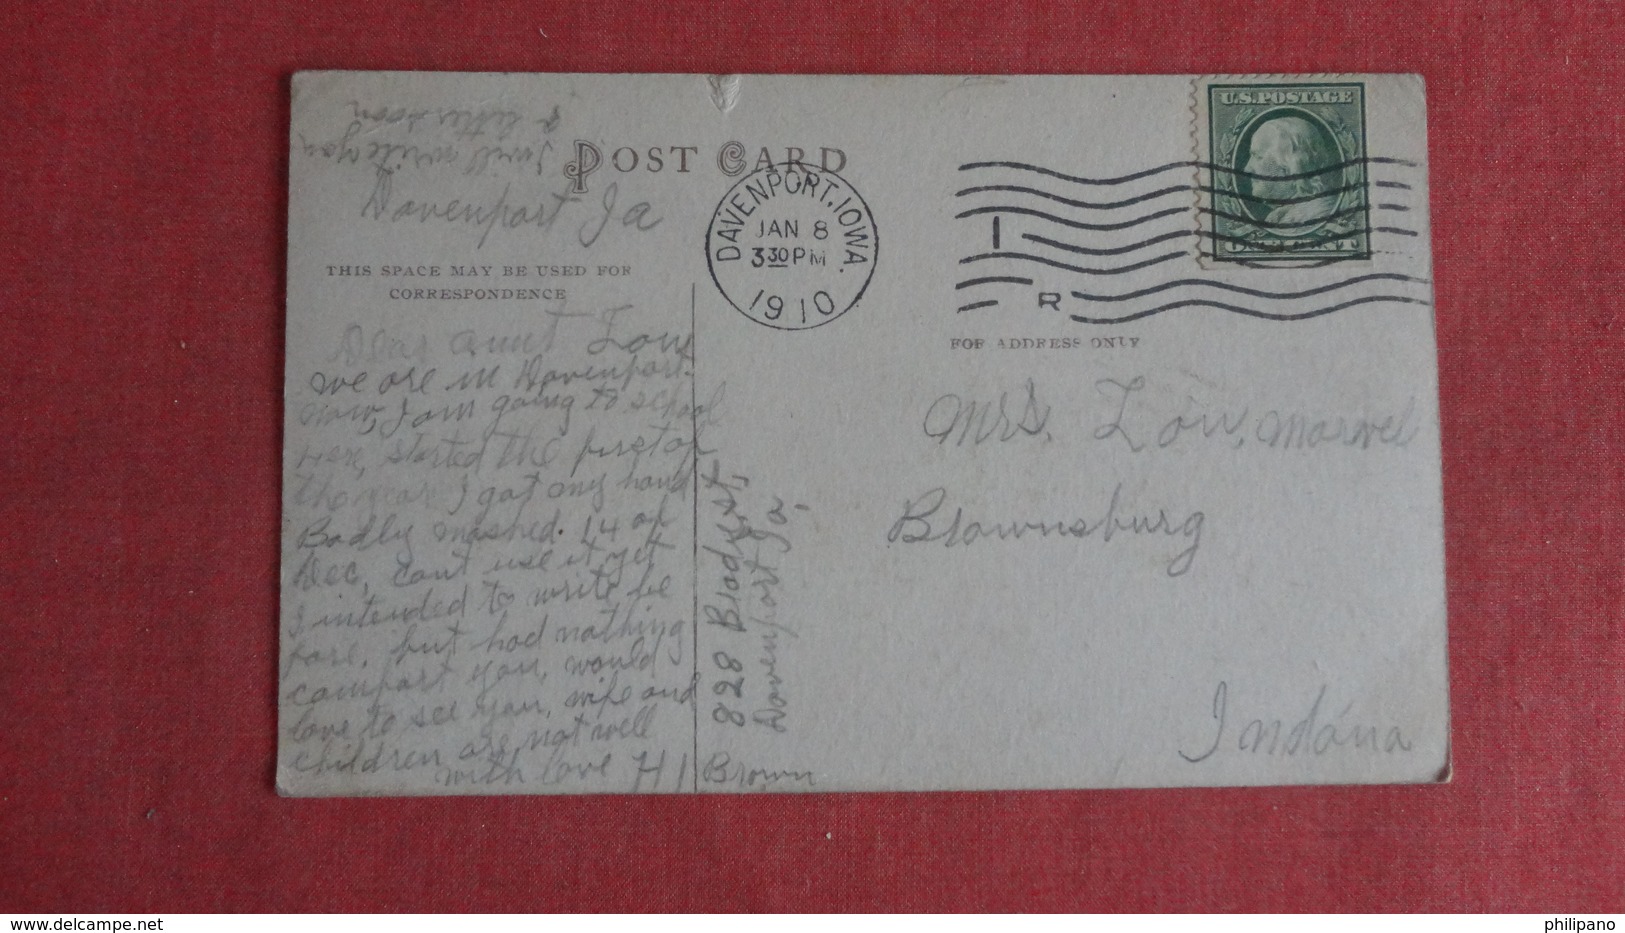 POST CARD
I will write you
a letter soon
Davenport Ia
THIS SPACE MAY BE USED FOR
CORRESPONDENCE
Dear aunt Lou
we are in Davenport.
now, I am going to school
Her, started the first of
the year I got my hand
Badly mashed. 14 of
Dec, cant use it yet
I intended to write be
fore, but had nothing
comfort you, would
love to see you, wife and
children are not well
with love H I Brown
828 Brady st,
Davenport Ia,
DAVENPORT, IOWA.
JAN 8
3 30 PM
1910
I
R
U.S. POSTAGE
FOR ADDRESS ONLY
Mrs. Lou, Marvel
Brownsburg
Indana
www.delcampe.net
philipano